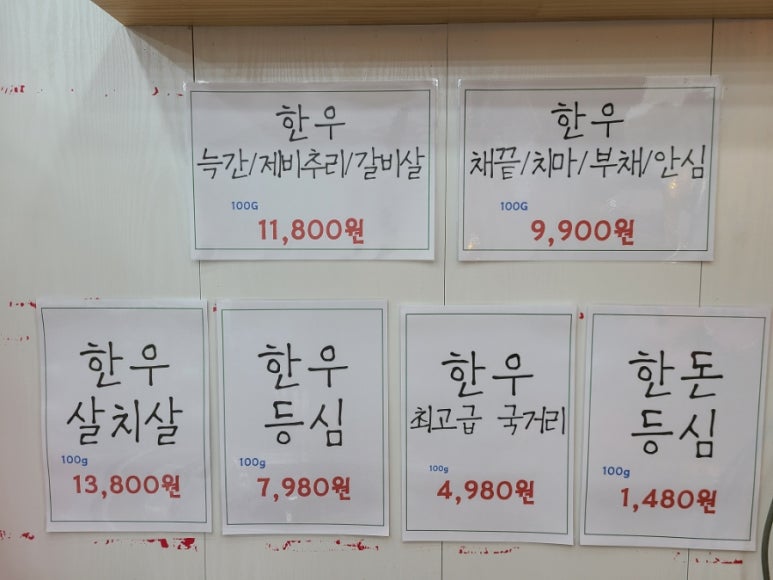 한우
늑간/제비추리/갈비살
100G
11,800원
한우
채끝/치마/부채/안심
100G
9,900원
한우
살치살
100g
13,800원
한우
등심
100g
7,980원
한우
최고급 국거리
100g
4,980원
한돈
등심
100g
1,480원